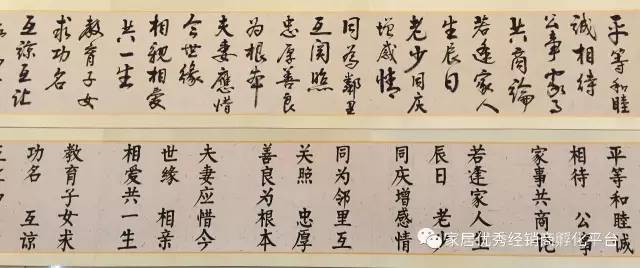 平等和睦
誠相待
公事家事
共商論
若逢家人
生辰日
老少同庆
增感情
同為鄰里
互関照
忠厚善良
为根本
夫妻應惜
今世缘
相親相愛
共一生
教育子女
求功名
互谅互让
平等和睦诚
相待 公事
家事共商论
若逢家人生
辰日 老少
同庆增感情
同为邻里互
关照 忠厚
善良为根本
夫妻应惜今
世缘 相亲
相爱共一生
教育子女求
功名 互谅
家居优秀经销商孵化平台